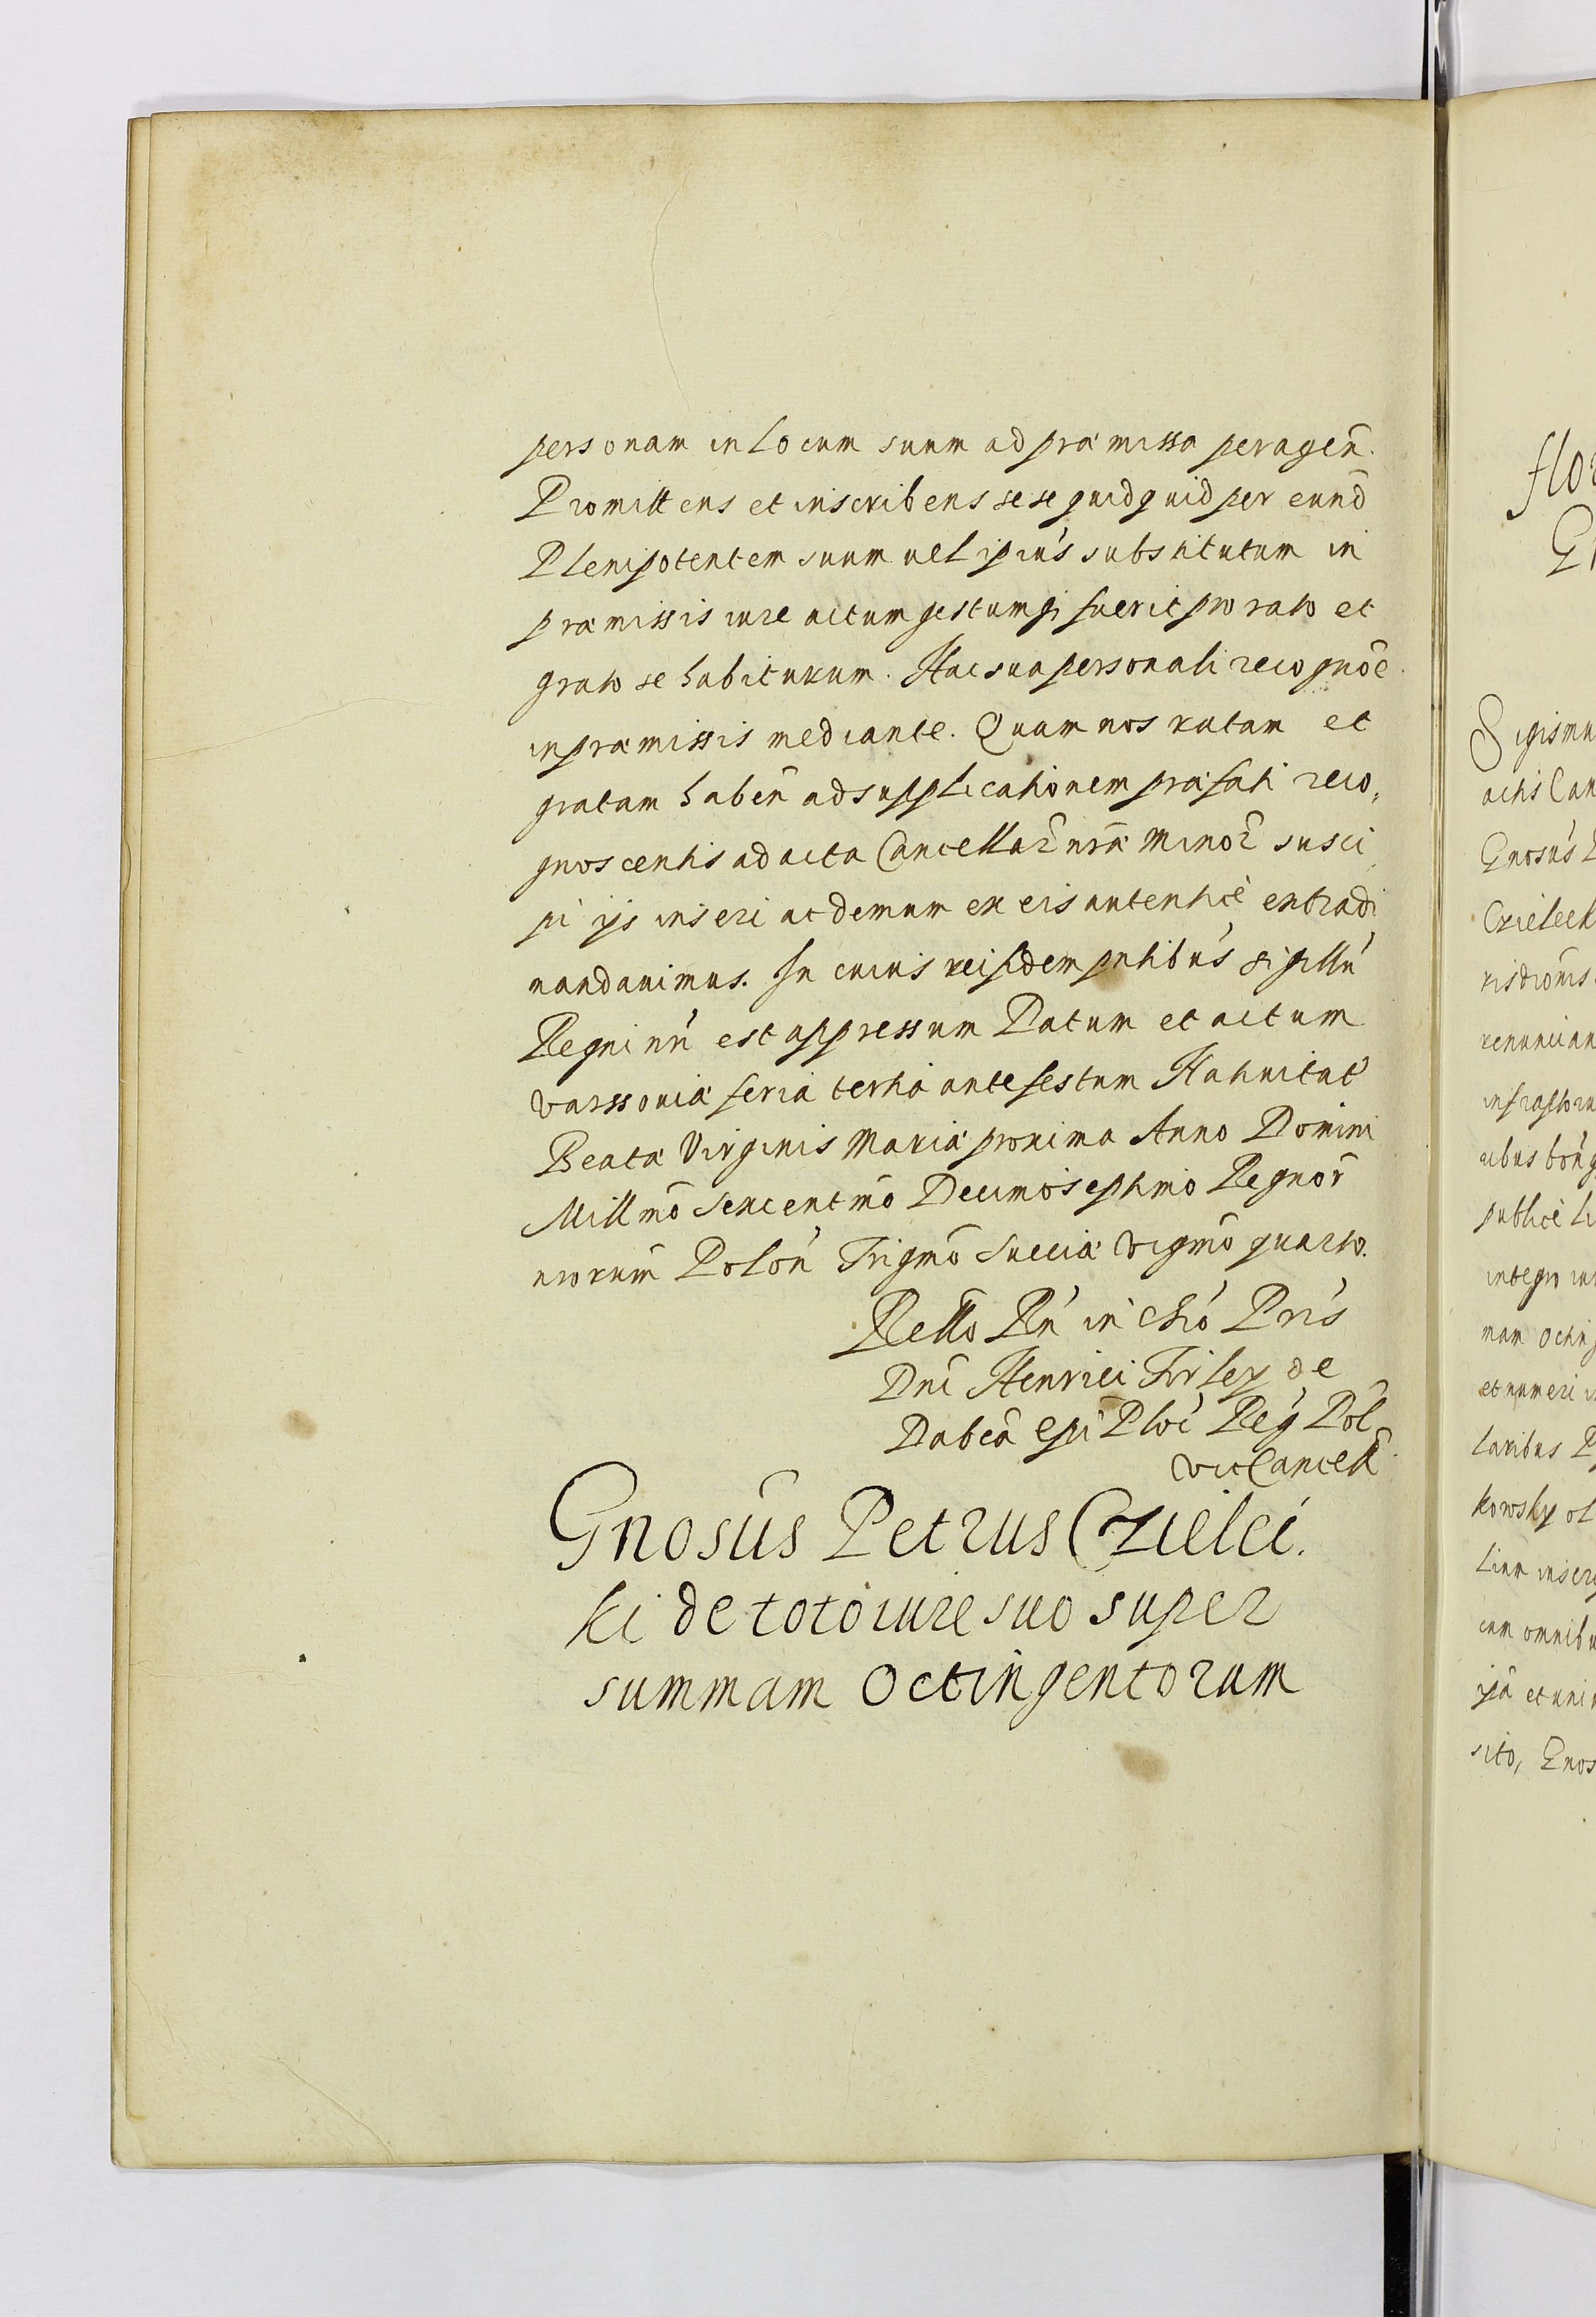 personam in locum suum ad præmissa peragen̄.
Promittens et inscribens sese quidquid per eund̄
Plenipotentem suum uel ipius substitutum in
præmissis iure actum gestumq; fuerit pro rato et
grato se habiturum. Hac sua personali recognōe
in præmissis mediante. Quam nos ratam et
gratam haben̄ ad supplicationem præfati reco,
gnoscentis ad acta Cancellar̄ nr̄æ Minor̄ susci
pi ijs inseri ac demum ex eis autenticè extradi
mandauimus. In cuius rei fidem pn̄tibus sigillū
Regni nr̄i est appressum Datum et actum
Varssouiæ feria tertia ante festum Natiuitat̄
Beatæ Virginis Mariæ proxima Anno Domini
Millmō Sexcentmō Decimoseptimo Regnor̄
nrorum̄ Polon̄ Trigmō Sueciæ Vigmō quarto.
Rello Rn̄ in Chō Pris
Dni Henrici Firley de
Dabrō Epi Ploc̄ Reḡ Pol̄
ViceCancell̄
Gnosūs Petrus Czielec.
ki de toto iure suo super
summam Octingentorum
flor
Gn
Sigismu
actis Can
Gnosus
Czieleck
risdiōnis
renuncian
infrascr
ibus bon
publicè
integro iu
mam Octing
et numeri
laribus
kowsky
cum omnibu
ipā et uni
sito, Gnos